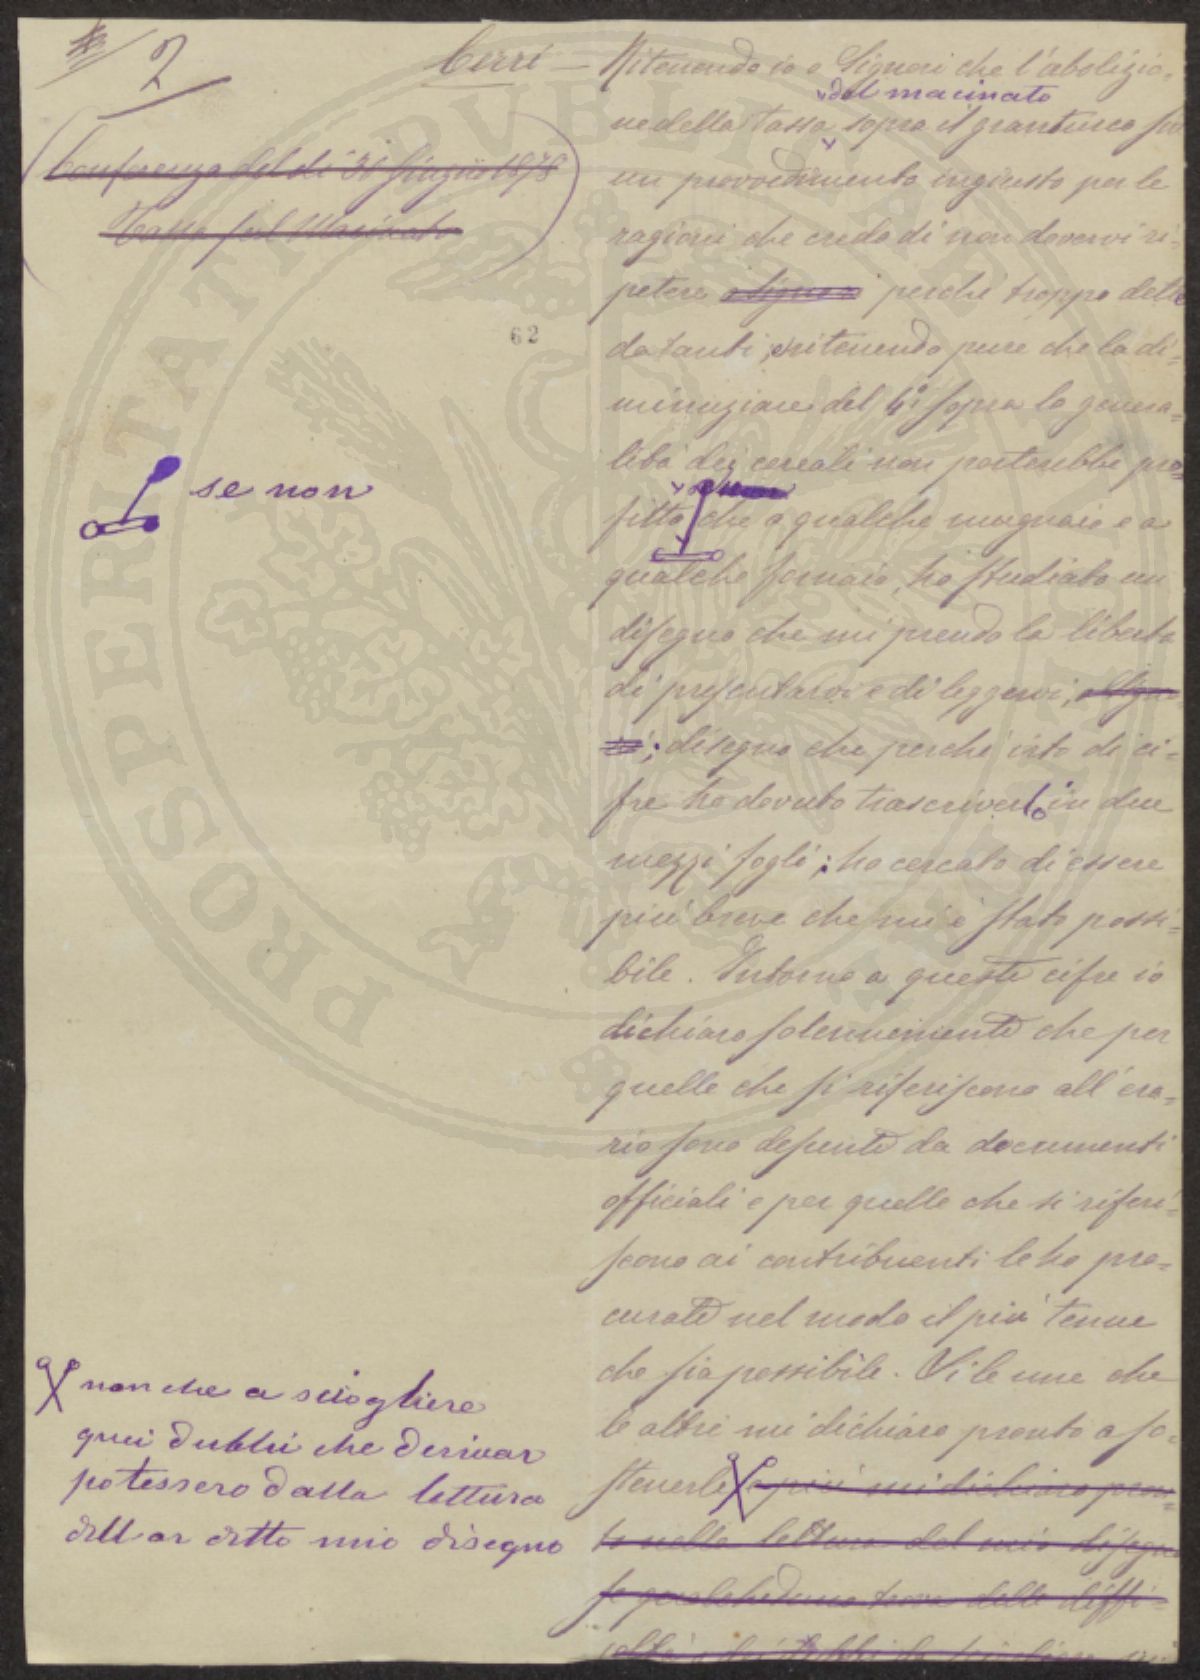 2
Conferenza del dì 30 Giugno 1878
Tassa sul Macinato
62
se non
non che a sciogliere
quei dubbi che derivar
potessero dalla lettura
dell or detto mio disegno
Cerri — Ritenendo io o Signori che l'abolizio=
del macinato
ne della tassa sopra il granturco sia
un provvedimento ingiusto per le
ragioni che credo di non dovervi ri=
petere o Signori perché troppo dette
da tanti, e ritenendo pure che la di=
minuzione del 4° sopra la genera=
lità dei cereali non porterebbe pro=
fitto che a qualche mugnaio e a
qualche fornaio, ho studiato un
disegno che mi prendo la libertà
di presentarvi e di leggervi, o Signo=
ri; disegno che perché irto di ci=
fre ho dovuto trascriverlo in due
mezzi fogli; ho cercato di essere
più breve che mi è stato possi=
bile. Intorno a queste cifre io
dichiaro solennemente che per
quelle che si riferiscono all'era=
rio sono desunte da documenti
officiali e per quelle che si riferi=
scono ai contribuenti le ho pro=
curate nel modo il più tenue
che sia possibile. Sì le une che
le altre mi dichiaro pronto a so=
stenerle e più mi dichiaro pron=
to nella lettura del mio disegno
se qualcheduno trova delle diffi=
PROSPERITATI PUBLICAE